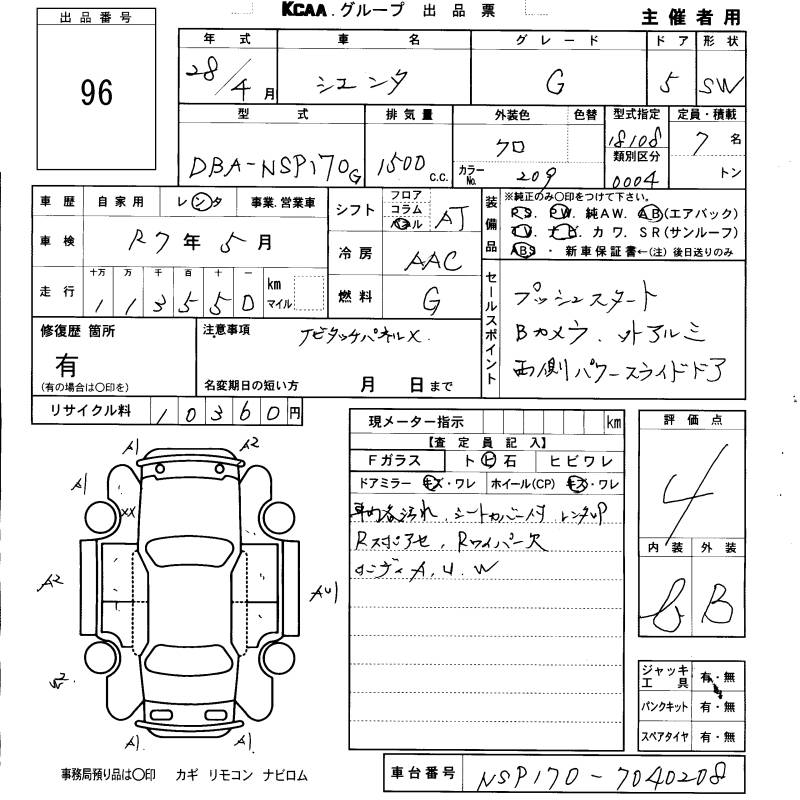 KCAA.グループ 出品票
主催者用
出品番号
96
年式 車名 グレード ドア 形状
28/4月 シエンタ G 5 SW
型式 排気量 外装色 色替 型式指定 定員・積載
DBA-NSP170G 1500 c.c. クロ 18108 7名
カラーNo. 209 類別区分 0004 トン
車歴 自家用 レンタ 事業.営業車
車検 R7年5月
走行 十万 万 千 百 十 一 km マイル
113550
シフト フロア コラム パネル AT
冷房 AAC
燃料 G
装備品 ※純正のみ〇印をつけて下さい。
PS. PW. 純AW. AB(エアバック)
TV. ナビ. カワ. SR(サンルーフ)
ABS・ 新車保証書←(注)後日送りのみ
セールスポイント
プッシュスタート
Bカメラ. 外アルミ
両側パワースライドドア
修復歴 箇所
有
(有の場合は〇印を)
注意事項
ナビタッチパネルX.
名変期日の短い方 月 日まで
リサイクル料 10360円
現メーター指示 km
【査定員記入】
Fガラス トビ石 ヒビワレ
ドアミラー キズ・ワレ ホイール(CP) キズ・ワレ
シートカバー付 レンタUP
Rワイパー欠
A.U.W
評価点
4
内装 外装
B
ジャッキ工具 有・無
パンクキット 有・無
スペアタイヤ 有・無
A1 A2
A1 A1
XX
A2 AU1
A1
A2 A2
事務局預り品は〇印 カギ リモコン ナビロム
車台番号 NSP170-7040208